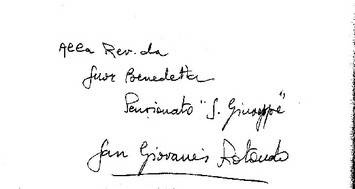 Alla Rev.da
Suor Benedetta
Pensionato "S. Giuseppe"
San Giovanni Rotondo